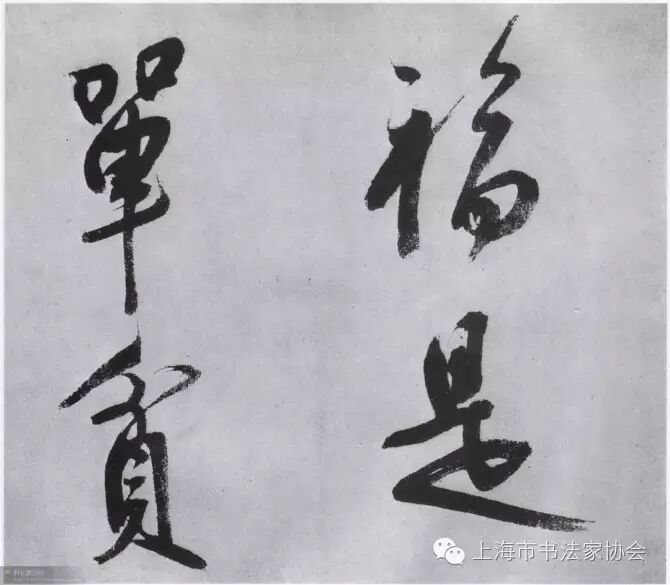 福是
單貧
上海市书法家协会